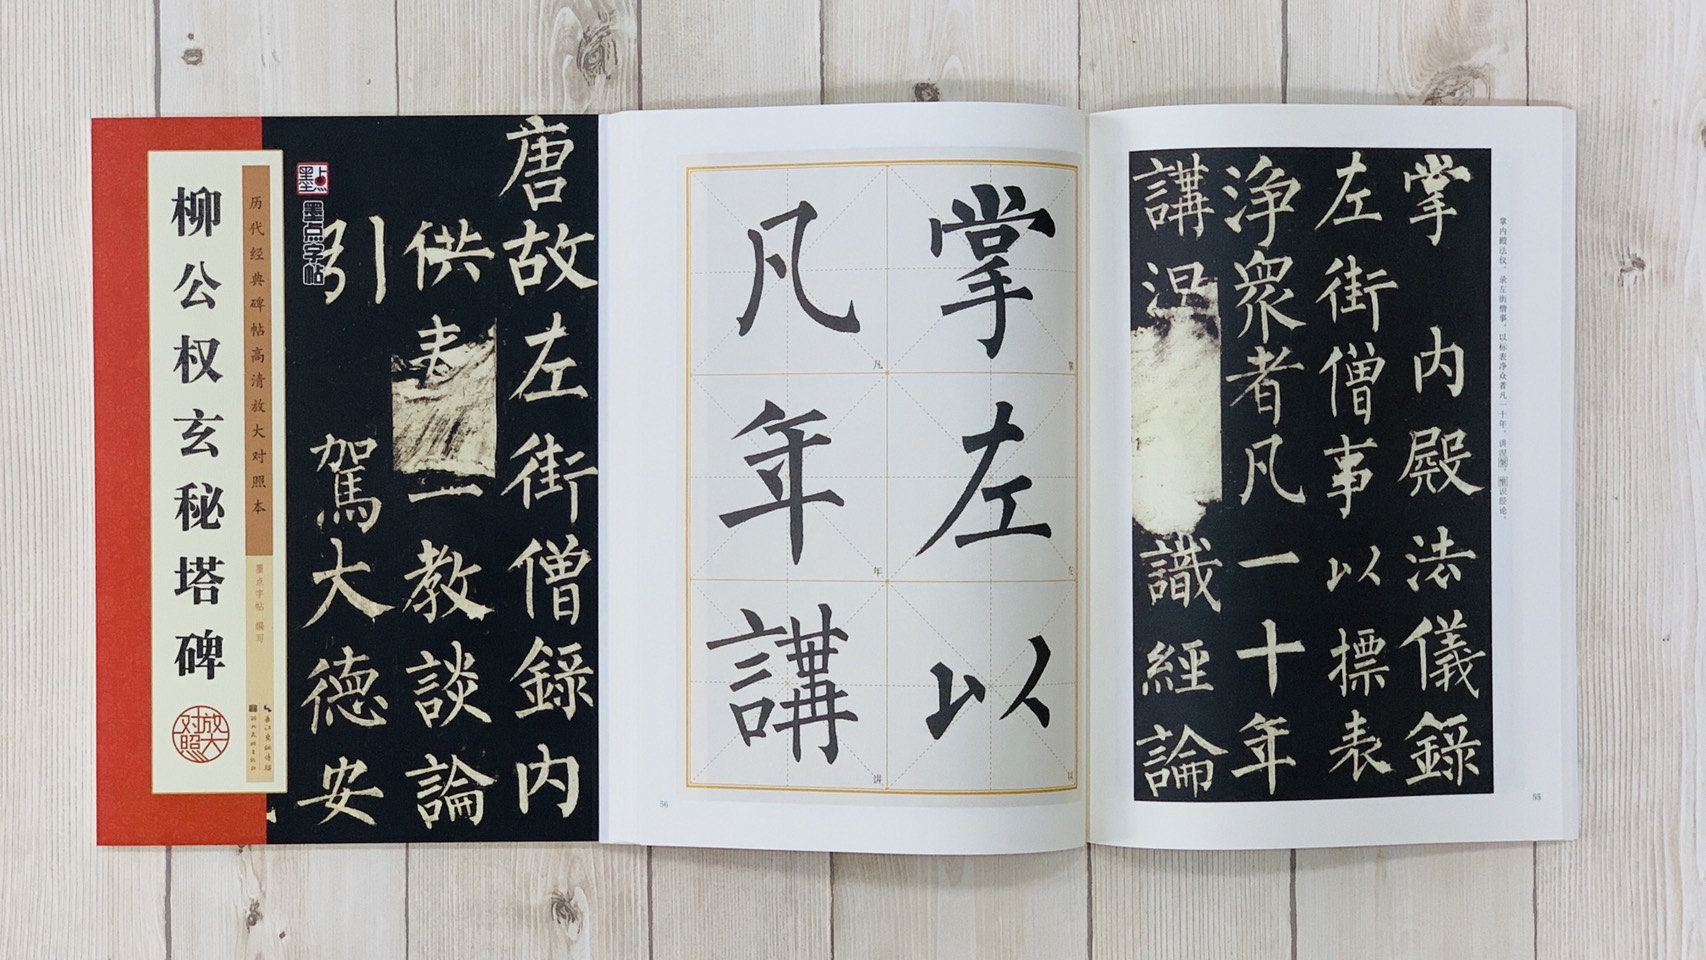 柳公权玄秘塔碑
历代经典碑帖高清放大对照本
墨点字帖 编写
放大对照
墨点
墨点字帖
唐故左街僧錄内
供表一教談論
引駕大德安
掌左以
掌
左
以
凡年講
凡
年
讲
56
掌内殿法儀錄
左街僧事以標表
浄衆者凡一十年
講涅識經論
掌内殿法仪，录左街僧事，以标表净众者凡一十年，讲涅槃、唯识经论，
55